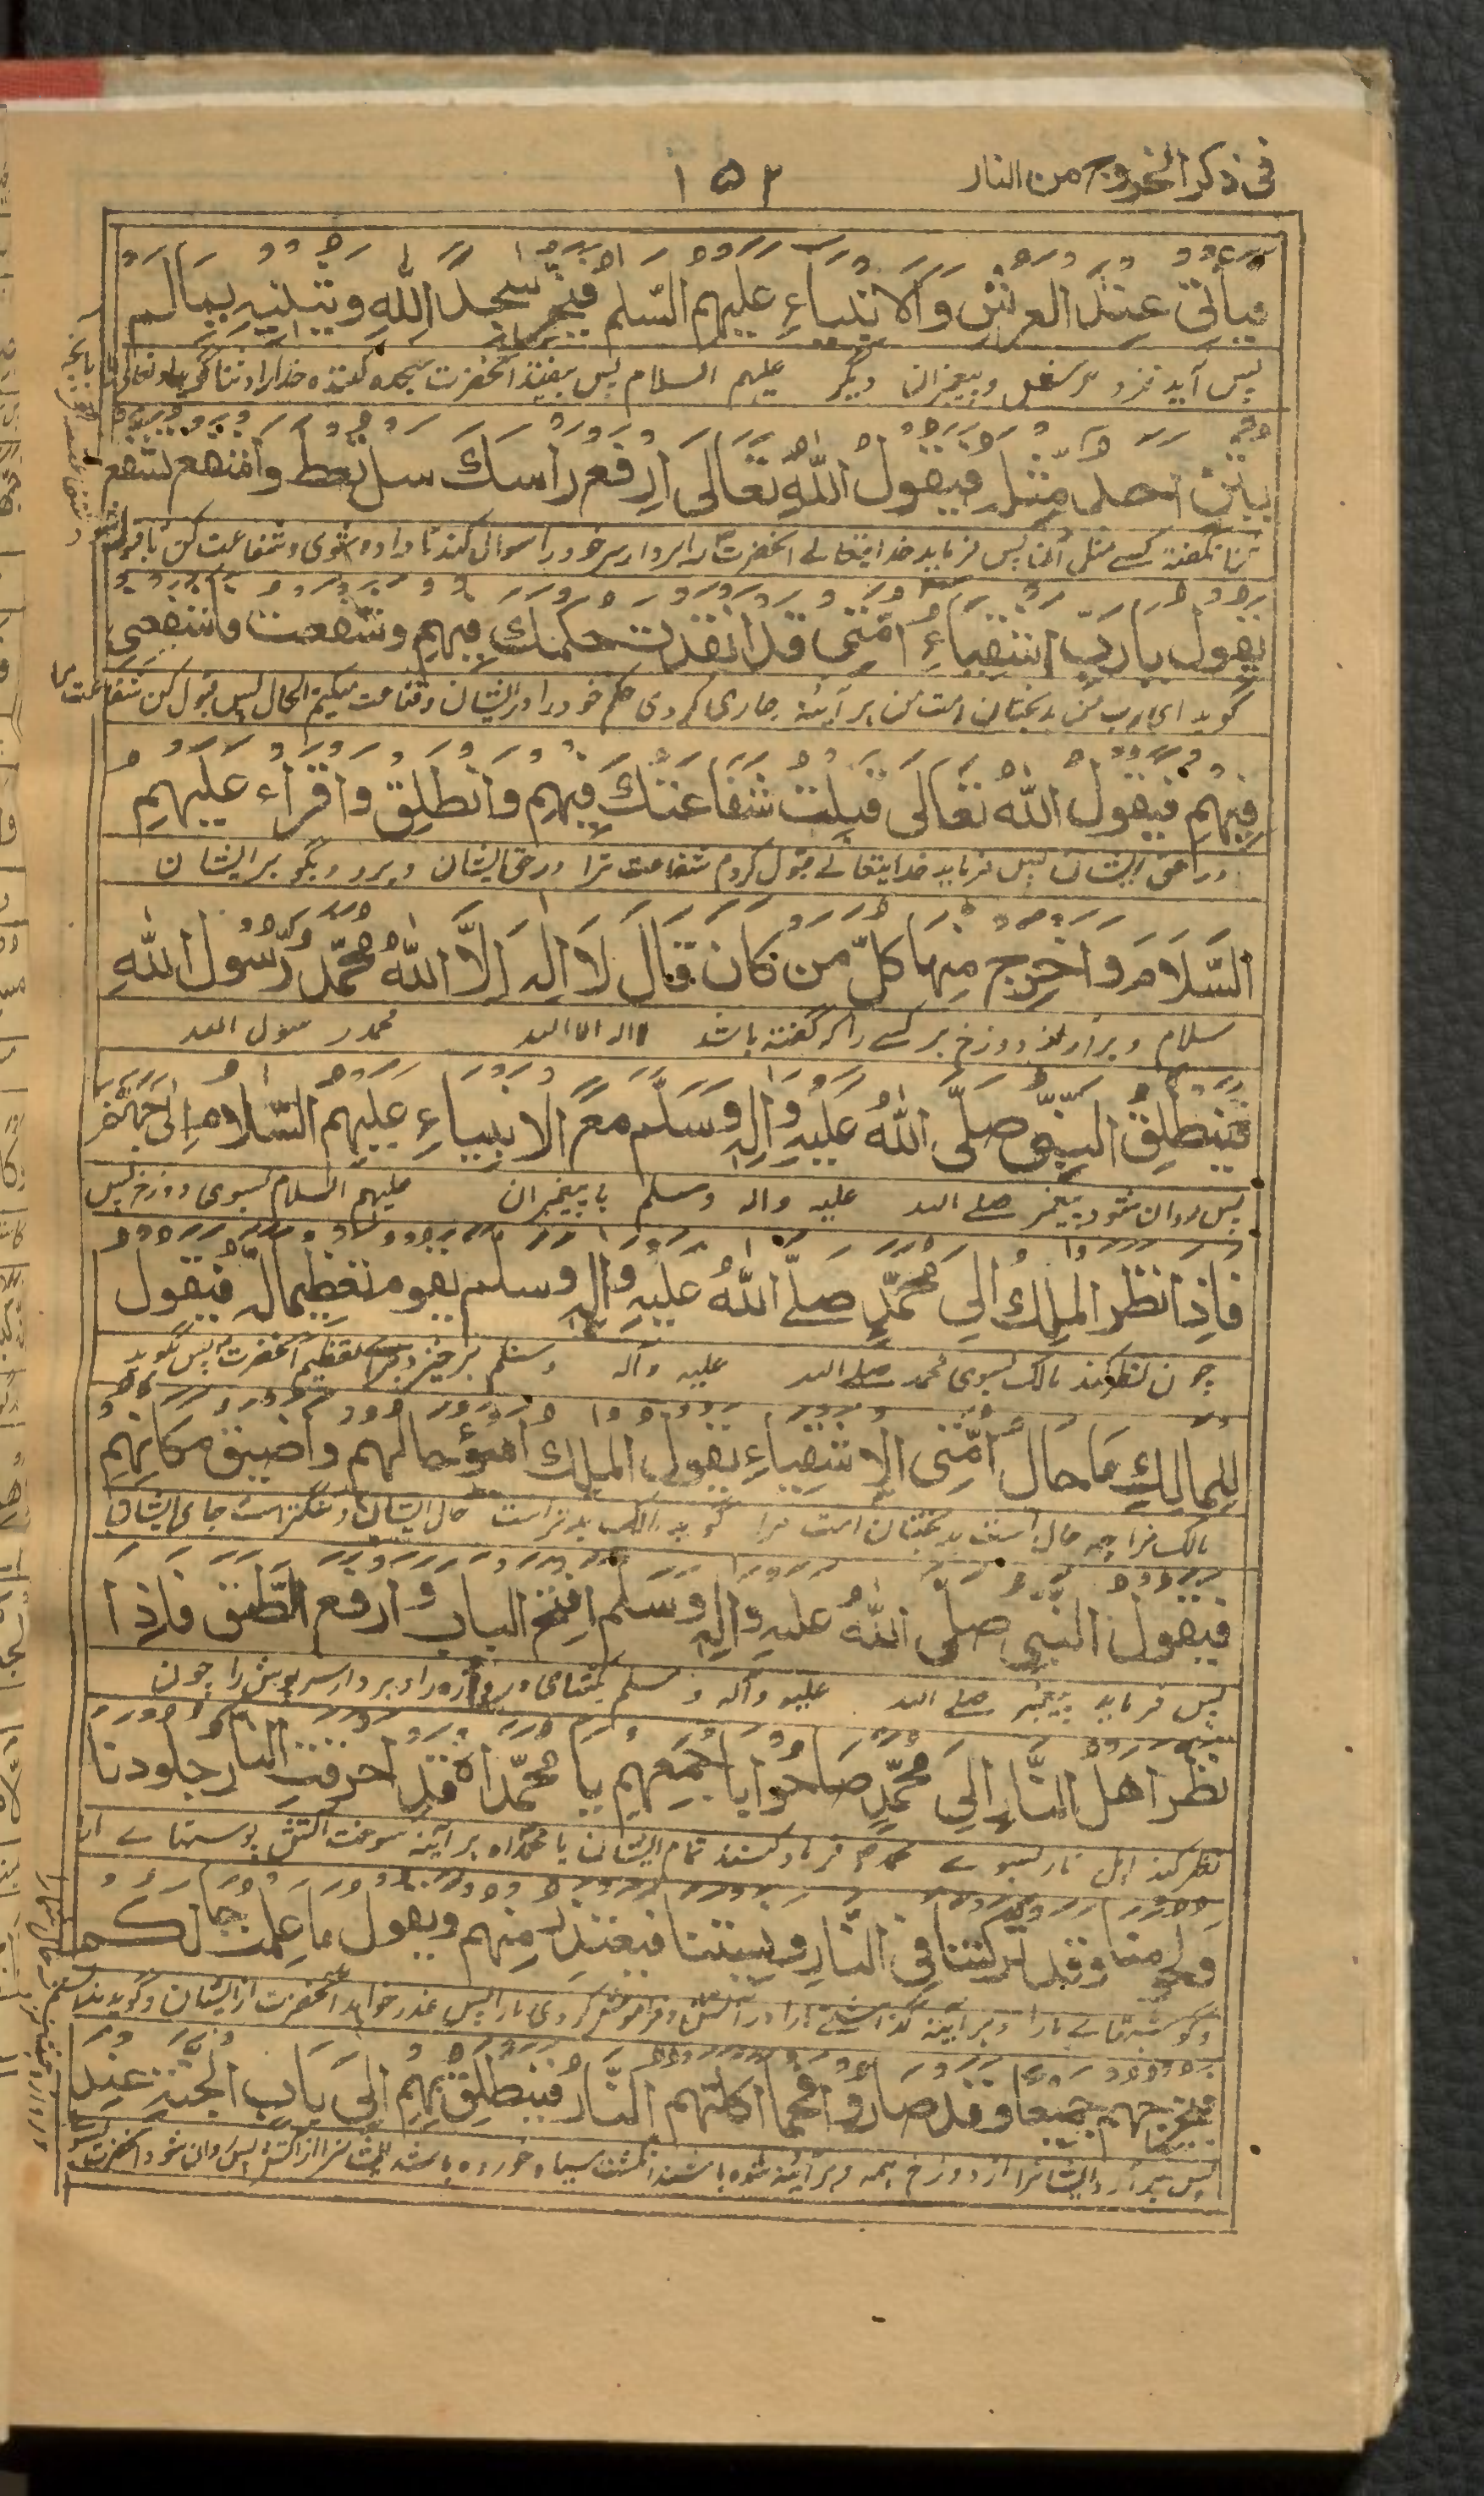 فی ذکر الخروج من النار
۱۵۲
فیأتی عِنْدَ العرشِ وَالاَنبیاءِ علیهم السّلم فیخر سجدًا للهِ ویثنیہ بمالم
پس آید نزد عرش و پیغمبران دیگر علیهم السلام پس بیفتد آنحضرت سجدہ کنندہ خدا را و ثنا گوید
یثن احد مثله فیقول اللهُ تعَالیٰ اِرفع راسك سل تعط واشفع تشفع
ثنا نگفتہ کسے مثل آن پس فرماید خدایتعالے آنحضرت را بردار سر خود را سوال کن تا دادہ شوی و شفاعت کن تا قبول
یقول یا ربّ اشقیاءِ اُمّتی قد انفذت حکمك فیهم وشفعت فاشفعنی
گوید ای رب من بدبختان امت من بر آئینہ جاری کردی حکم خود را در ایشان الحال پس قبول کن شفاعت
فِیهم فیقول اللهُ تعَالیٰ قبلت شفاعتك فِیهم وانطلق واقراء علیهم
در حق ایشان پس فرماید خدایتعالے قبول کردم شفاعت ترا در حق ایشان و برو و بگو بر ایشان
السّلامَ واخرج منها کلّ من کان قال لَا الٰه اِلاَّ اللهُ محمّدٌ رَّسُول اللهِ
سلام و برآر از دوزخ ہر کسے را کہ گفتہ باشد لا الہ الا اللہ محمد رسول اللہ
فینطلِقُ النبیّ صلّی اللهُ علیہ وَاٰلہ وَسَلم مع الانبیاءِ علیهم السّلام اِلیٰ جهنّم
پس روان شود پیغمبر صلے اللہ علیہ والہ وسلم با پیغمبران علیهم السلام بسوی دوزخ پس
فاِذا نظر المٰلِك اِلیٰ محمّدٍ صلّے اللهُ علیہ واٰلہ وسلم یقوم تعظیما لہ فیقول
چون نظر کند مالک بسوی محمد صلے اللہ علیہ وآلہ وسلم برخیزد تعظیم آنحضرت پس گوید
للمالكِ مَا حال اُمّتی الاشقیاءِ یقول الملِك اَسْوَءُ حالهم واضیق مکانهم
مالک را چہ حال است بدبختان امت مرا گوید مالک بدتر است حال ایشان و تنگتر است جای ایشان
فیقول النّبی صلّی اللهُ علیہ واٰلہ وَسلم افتح الباب وارفع الطّبق فاِذا
پس فرماید پیغمبر صلے اللہ علیہ وآلہ وسلم بکشای دروازہ را و بردار سرپوش را چون
نظر اهل النَّار اِلیٰ محمّدٍ صَاحُوا باجمعهم یا محمّداہ قد احرقت النار جلودنا
نظر کند اہل نار بسوے محمد فریاد کنند تمام ایشان یا محمداہ بر آئینہ سوخت آتش پوستہائے
ولحومنا وقد ترکتنا فی النّارِ ونسیتنا فیعتذر منهم ویقول ما علمت حالکم
وگوشتہائے مارا و بر آئینہ گذاشتے مارا در آتش و فراموش کردی مارا پس عذر خواہد آنحضرت از ایشان و گوید
فیخرجهم جمیعا وقد صارُوا فحما اکلتهم النَّار فینطلق بهم اِلیٰ بَابِ الجنّة عِند
پس برآرد ایشانرا از دوزخ ہمہ و بر آئینہ شدہ باشند انگشت سیاہ خوردہ باشد ایشانرا آتش پس روان شود آنحضرت